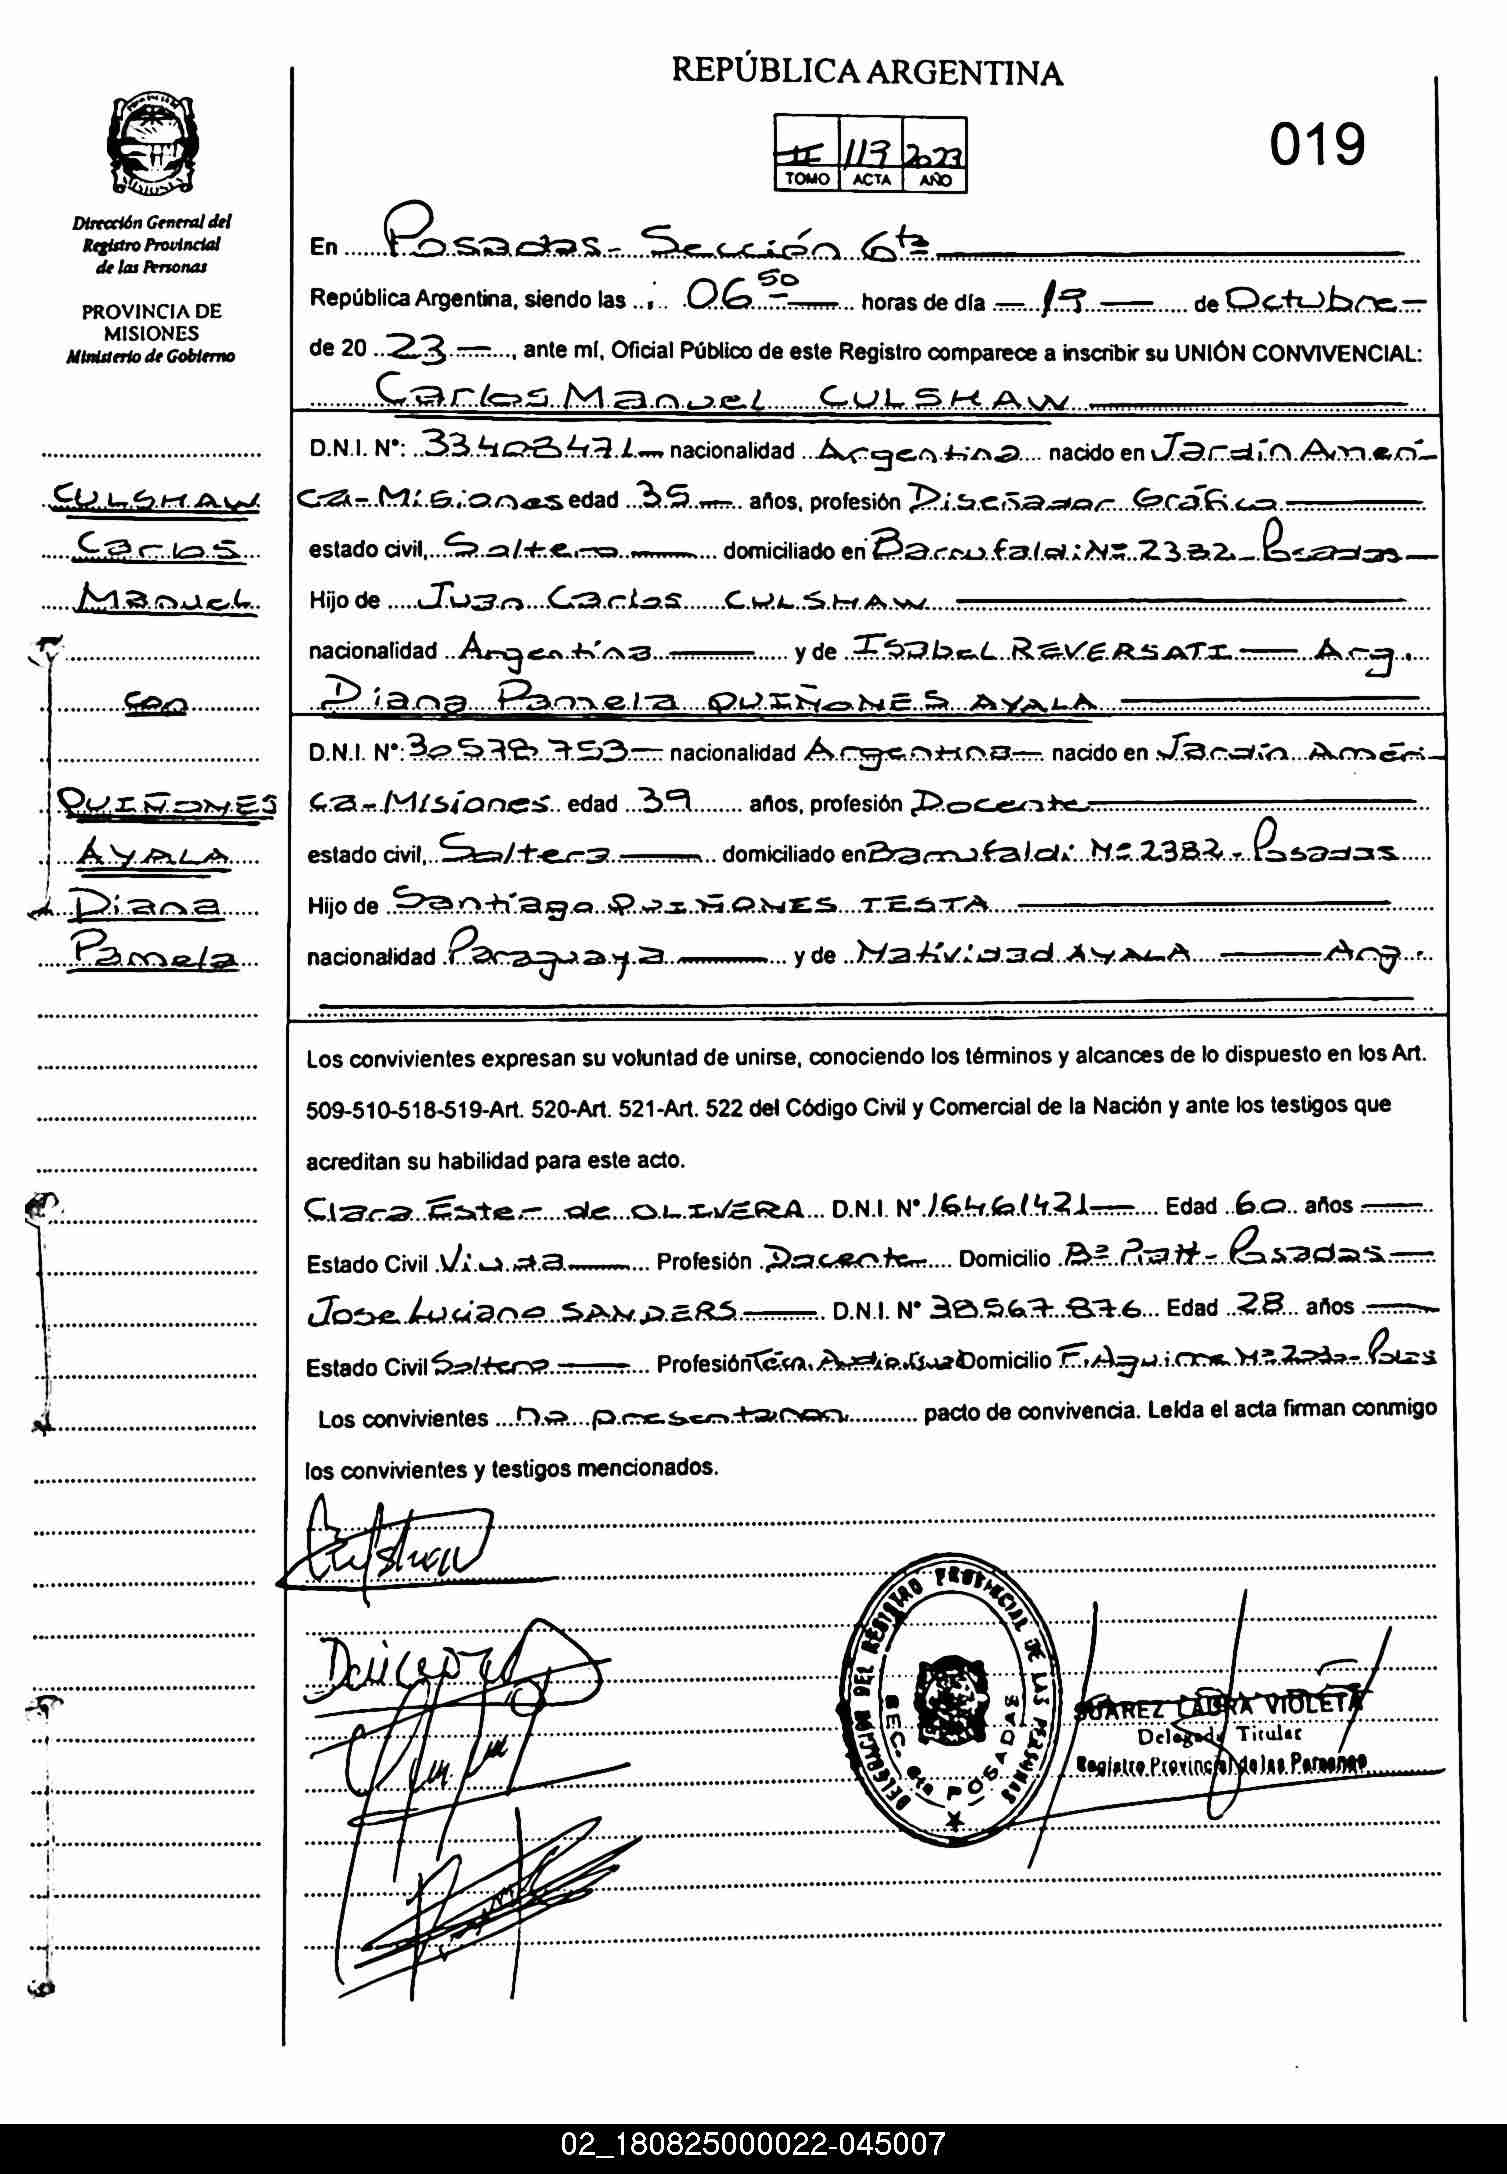 REPÚBLICA ARGENTINA
019
II 119 2023
TOMO ACTA AÑO
Dirección General del
Registro Provincial
de las Personas
PROVINCIA DE
MISIONES
Ministerio de Gobierno
CULSHAW
Carlos
Manuel
con
QUIÑONES
AYALA
Diana
Pamela
En Posadas - Sección 6ta
República Argentina, siendo las 06 50 horas de día 19 de Octubre
de 20 23, ante mí, Oficial Público de este Registro comparece a inscribir su UNIÓN CONVIVENCIAL:
Carlos Manuel CULSHAW
D.N.I. N°: 33408471 nacionalidad Argentina nacido en Jardín Amérí-
ca - Misiones edad 35 años, profesión Diseñador Gráfico
estado civil, Soltero domiciliado en Barrufaldi Nº 2382 - Posadas
Hijo de Juan Carlos CULSHAW
nacionalidad Argentina y de Isabel REVERSATI Arg.
Diana Pamela QUIÑONES AYALA
D.N.I. N°: 30578753 nacionalidad Argentina nacido en Jardín Améri-
ca - Misiones edad 39 años, profesión Docente
estado civil, Soltera domiciliado en Barrufaldi Nº 2382 - Posadas
Hijo de Santiago QUIÑONES TESTA
nacionalidad Paraguaya y de Natividad AYALA Arg.
Los convivientes expresan su voluntad de unirse, conociendo los términos y alcances de lo dispuesto en los Art.
509-510-518-519-Art. 520-Art. 521-Art. 522 del Código Civil y Comercial de la Nación y ante los testigos que
acreditan su habilidad para este acto.
Clara Ester de OLIVERA D.N.I. N° 16461421 Edad 60 años
Estado Civil Viuda Profesión Docente Domicilio Bº Pratt - Posadas
Jose Luciano SANDERS D.N.I. N° 38.567.876 Edad 28 años
Estado Civil Soltero Profesión Técn. Domicilio F. Aguirre Nº
Los convivientes no presentaron pacto de convivencia. Leída el acta firman conmigo
los convivientes y testigos mencionados.
DELEGACION DEL REGISTRO PROVINCIAL DE LAS PERSONAS
SEC. 6ta POSADAS
SUAREZ LAURA VIOLETA
Delegada Titular
Registro Provincial de las Personas
02_180825000022-045007